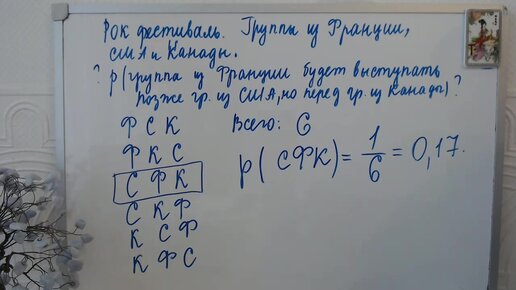 Рок фестиваль. Группы из Франции,
США и Канады.
? p(группа из Франции будет выступать
позже гр. из США, но перед гр. из Канады)?
Ф С К
Всего: 6
Ф К С
С Ф К
p( СФК) = 1/6 = 0,17.
С К Ф
К С Ф
К Ф С